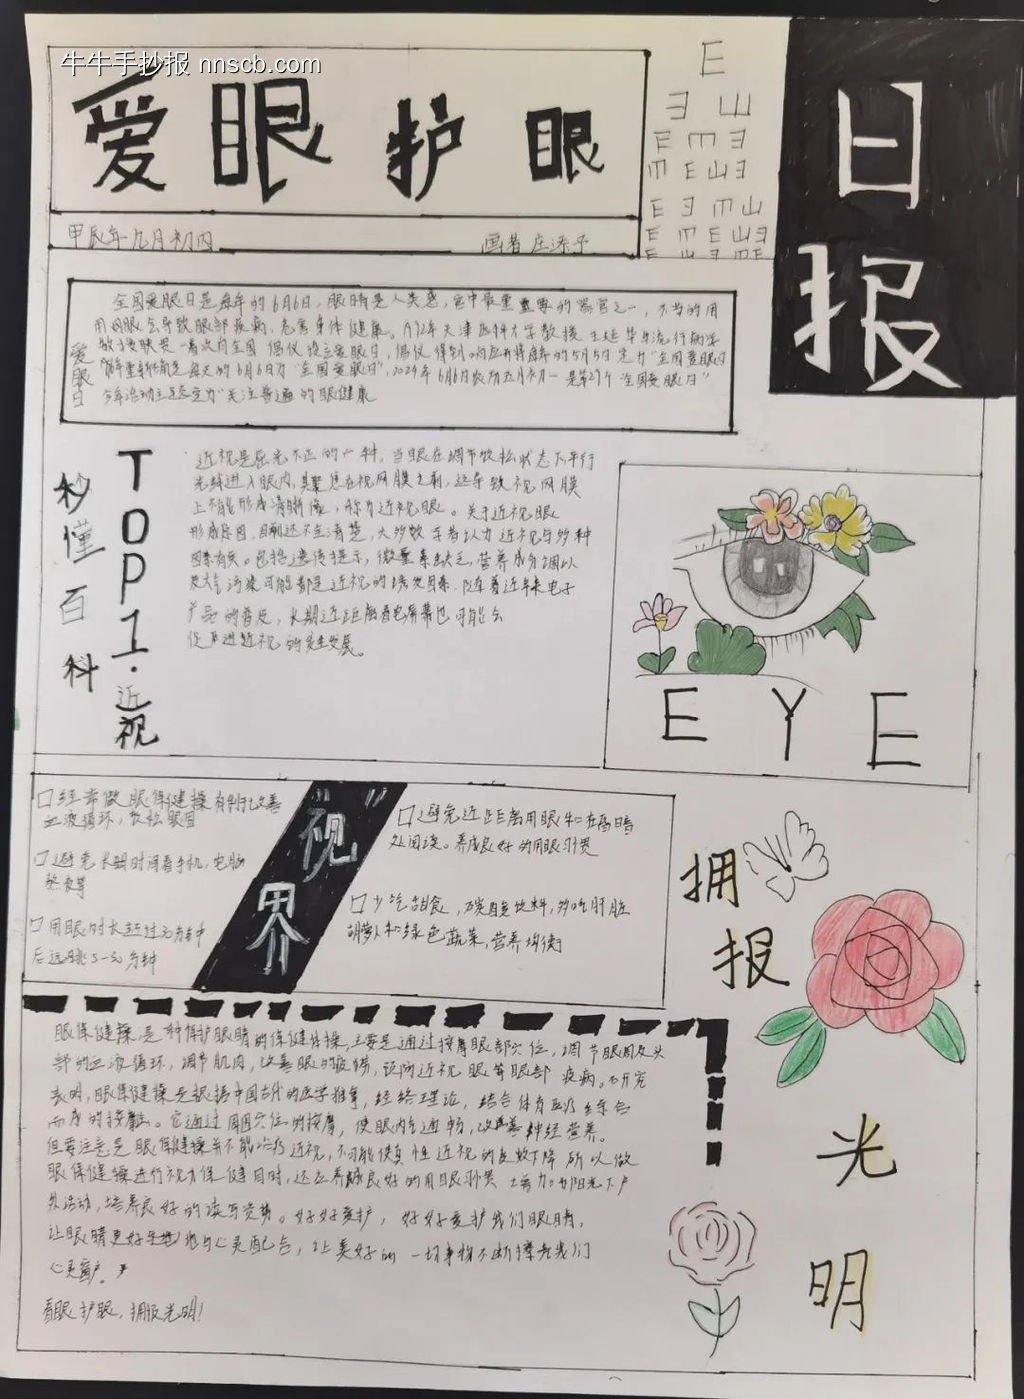 牛牛手抄报 nnscb.com
爱眼护眼
日报
E
E
甲辰年九月初四
画者
爱眼日
全国爱眼日是每年的6月6日,眼睛是人类感官中最重要的器官之一,不当的用
用网眼会导致眼部疾病,危害身体健康。1992年天津医科大学教授王延华与流行病学
教授耿贯一首次向全国倡仪设立爱眼日,倡仪得到响应并将每年的5月5日定为“全国爱眼日
每天的6月6日为“全国爱眼日”,2024年6月6日农历五月初一是第29个“全国爱眼日”
今年活动主题定为“关注普遍的眼健康
秒懂百科
TOP1.近视
近视是屈光不正的一种,当眼在调节放松状态下平行
光线进入眼内,其聚焦在视网膜之前,这导致视网膜
上不能形成清晰像,称为近视眼。关于近视眼
形成原因,目前还不全清楚,大多数学者认为近视与多种
因素有关。包括遗传提示,微量素缺乏,营养成分调以
及大气污染可能都是近视的诱发因素.随着近年来电子
产品的普及,长期近距离看电屏幕也可能会
促进近视的发生发展。
EYE
“视”界
口经常做眼保健操有利于改善
血液循环,放松眼因
口避免长时间看手机,电脑
熬夜等
口用眼时长超过30分钟
后远眺5-30分钟
口避免近距离用眼和在昏暗
处阅读。养成良好的用眼习惯
口少吃甜食,碳酸饮料,多吃肝脏
胡萝卜和绿色蔬菜,营养均衡
拥报光明
眼保健操是一种保护眼睛的保健体操,主要是通过按摩眼部穴位,调节眼周及头
部的血液循环,调节肌肉,改善眼的疲劳,预防近视眼等眼部疾病。研究
表明,眼保健操是根据中国古代的医学推拿,经络理论,结合体育医疗综合
而成的按摩法。它通过周围穴位的按摩,使眼内气血通畅,改善神经营养。
但要注意是眼保健操并不能治疗近视,不可能使真性近视的度数下降所以做
眼保健操进行视力保健同时,还应养成良好的用眼习惯增加阳光下户
外活动,培养良好的读写姿势。好好爱护,好好爱护我们眼睛,
让眼睛更好地与心灵配合,让美好的一切事物不断擦亮我们
心灵窗户。
看眼护眼,拥报光明!